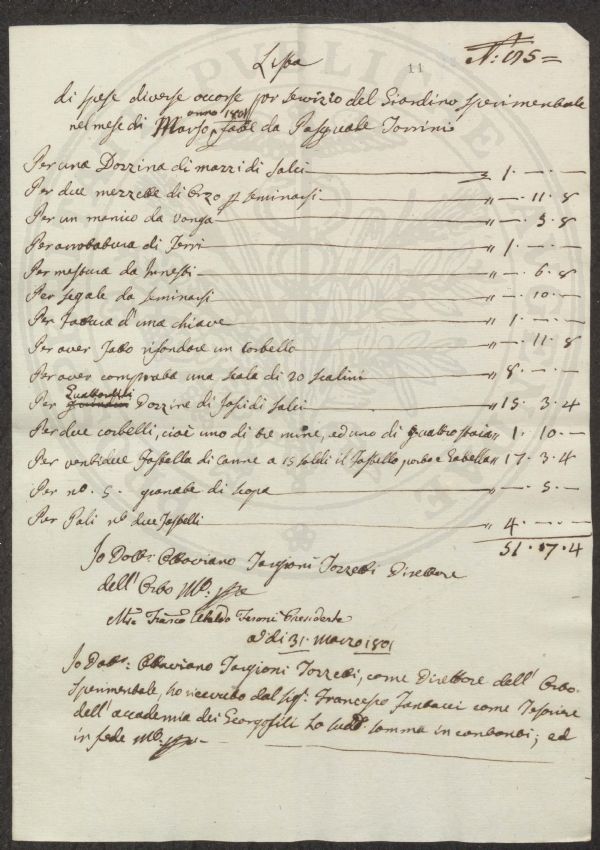 Lista
11
N.° 195=
di spese diverse occorse per servizio del Giardino sperimentale
nel mese di Marzo anno 1801 fatte da Pasquale Torrini
Per una Dozzina di mazzi di salci £ 1. —. —
Per due mezzette di Orzo p seminarsi " —. 11. 8
Per un manico da vanga " —. 3. 8
Per arrotatura di ferri " 1. —. —
Per mestura da Innesti " —. 6. 8
Per segale da seminarsi " —. 10. —
Per fattura d'una chiave " 1. —. —
Per aver fatto rifondare un corbello " —. 11. 8
Per aver comprata una scala di 20 scalini " 8. —. —
Per Quattordici Dozzine di fasci di salci " 15. 3. 4
Per due corbelli, cioè uno di tre mine, ed uno di quattro staia " 1. 10. —
Per ventidue fastella di canne a 15 soldi il fastello porto e gabella " 17. 3. 4
Per n.° 5. granate di scopa " —. 5. —
Per Pali n.° due fastelli " 4. —. —
51. 17. 4
Io Dott.e Ottaviano Targioni Tozzetti Direttore
dell' Orto
Franco Ubaldo Feroni Presidente
a dì 31. Marzo 1801
Io Dott.e Ottaviano Targioni Tozzetti, come Direttore dell' Orto
sperimentale, ho ricevuto dal Sig.r Francesco come Tesoriere
dell' accademia dei Georgofili la sudd.a somma in contanti; ed
in fede